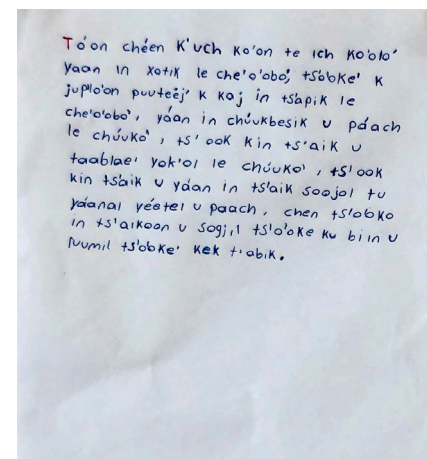 Tó'on chéen K'uch ko'on te ich ko'olo'
yaan in xotik le che'o'obo', ts'o'oke' k
juplo'on puuteej' k kaj in tsapik le
che'o'obo', yáan in chúukbesik u páach
le chúuko', ts'ook kin ts'aik u
taablae' yok'ol le chúuko', ts'ook
kin tsáik u yáan in ts'aik soojol tu
yáanal yéetel u paach, chen ts'obko
in ts'aikoon u sogjil ts'o'oke ku biin u
Numil ts'obke' kek t'abik.